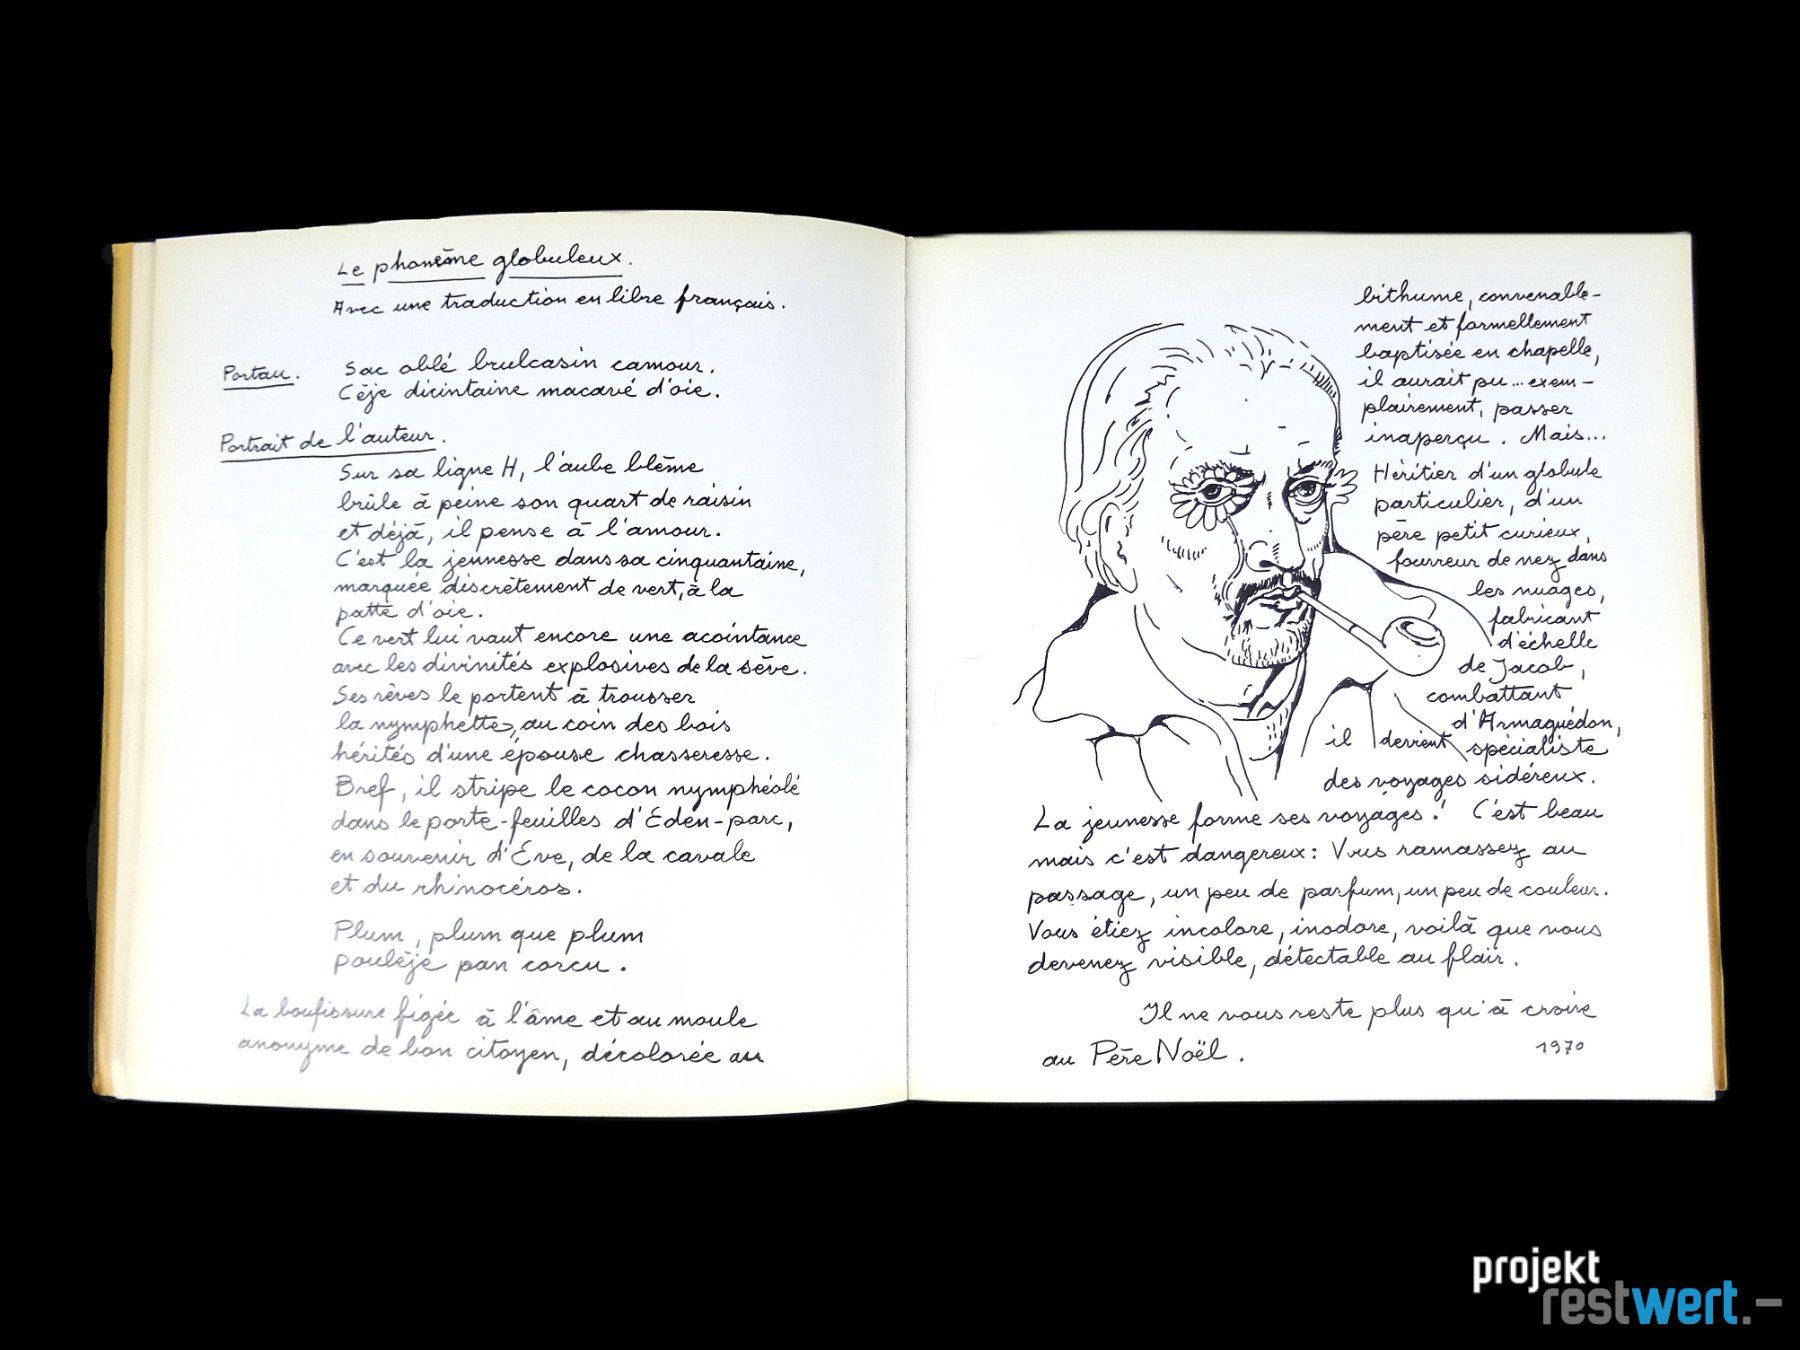 Le phonème globuleux.
Avec une traduction en libre français.
Portau.
Sac oblé brulcasin camour.
Cèje dicintaine macavé d'oie.
Portrait de l'auteur.
Sur sa ligne H, l'aube blême
brûle à peine son quart de raisin
et déjà, il pense à l'amour.
C'est la jeunesse dans sa cinquantaine,
marquée discrètement de vert, à la
patte d'oie.
Ce vert lui vaut encore une acointance
avec les divinités explosives de la sève.
Ses rêves le portent à trousser
la nymphette, au coin des bois
hérités d'une épouse chasseresse.
Bref, il stripe le cocon nymphéolé
dans le porte-feuilles d'Eden-parc,
en souvenir d'Eve, de la cavale
et du rhinocéros.
Plum, plum que plum
poulèje pan corcu.
La boufissure figée à l'âme et au moule
anonyme de bon citoyen, décolorée au
bithume, convenable-
ment et formellement
baptisée en chapelle,
il aurait pu... exem-
plairement, passer
inaperçu. Mais...
Héritier d'un globule
particulier, d'un
père petit curieux,
fourreur de nez dans
les nuages,
fabricant
d'échelle
de Jacob,
combattant
d'Armaguédon,
il devient spécialiste
des voyages sidéreux.
La jeunesse forme ses voyages! C'est beau
mais c'est dangereux: Vous ramassez au
passage, un peu de parfum, un peu de couleur.
Vous étiez incolore, inodore, voilà que vous
devenez visible, détectable au flair.
Il ne vous reste plus qu'à croire
au Père Noël.
1970
projekt
restwert.–